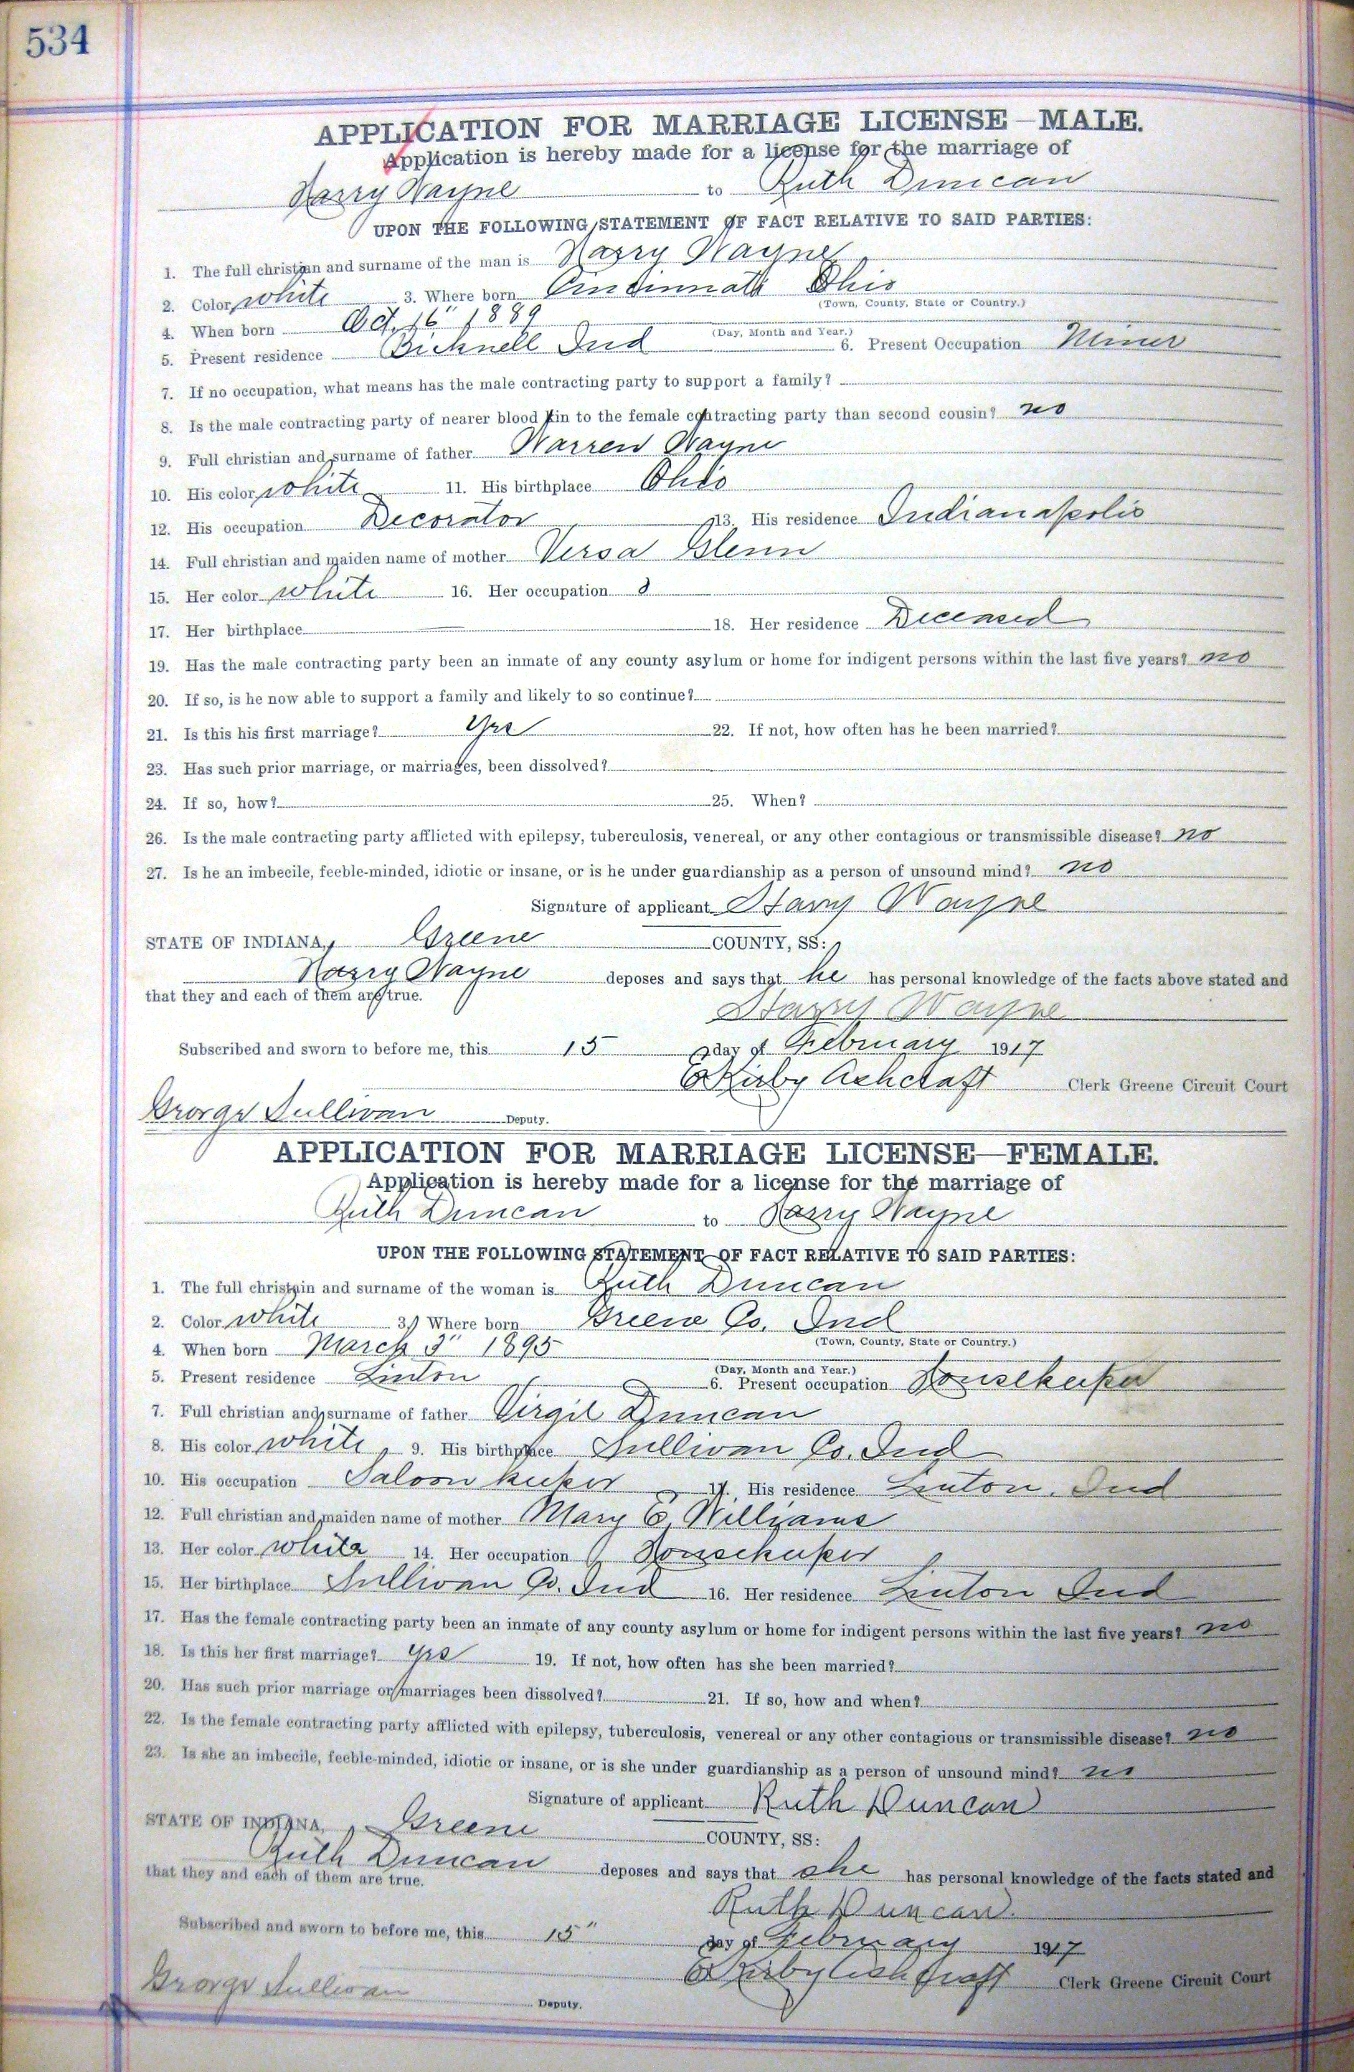 534
APPLICATION FOR MARRIAGE LICENSE—MALE.
Application is hereby made for a license for the marriage of
Harry Wayne to Ruth Duncan
UPON THE FOLLOWING STATEMENT OF FACT RELATIVE TO SAID PARTIES:
1. The full christian and surname of the man is Harry Wayne
2. Color white 3. Where born Cincinnati Ohio
(Town, County, State or Country.)
4. When born Oct. 16" 1889
(Day, Month and Year.)
5. Present residence Bicknell Ind 6. Present Occupation Miner
7. If no occupation, what means has the male contracting party to support a family?
8. Is the male contracting party of nearer blood kin to the female contracting party than second cousin? no
9. Full christian and surname of father Warren Wayne
10. His color white 11. His birthplace Ohio
12. His occupation Decorator 13. His residence Indianapolis
14. Full christian and maiden name of mother Versa Glenn
15. Her color white 16. Her occupation
17. Her birthplace — 18. Her residence Deceased
19. Has the male contracting party been an inmate of any county asylum or home for indigent persons within the last five years? no
20. If so, is he now able to support a family and likely to so continue?
21. Is this his first marriage? yes 22. If not, how often has he been married?
23. Has such prior marriage, or marriages, been dissolved?
24. If so, how? 25. When?
26. Is the male contracting party afflicted with epilepsy, tuberculosis, venereal, or any other contagious or transmissible disease? no
27. Is he an imbecile, feeble-minded, idiotic or insane, or is he under guardianship as a person of unsound mind? no
Signature of applicant Harry Wayne
STATE OF INDIANA, Greene COUNTY, SS:
Harry Wayne deposes and says that he has personal knowledge of the facts above stated and
that they and each of them are true.
Harry Wayne
Subscribed and sworn to before me, this 15 day of February 1917
E Kirby Ashcraft Clerk Greene Circuit Court
George Sullivan Deputy.
APPLICATION FOR MARRIAGE LICENSE—FEMALE.
Application is hereby made for a license for the marriage of
Ruth Duncan to Harry Wayne
UPON THE FOLLOWING STATEMENT OF FACT RELATIVE TO SAID PARTIES:
1. The full christain and surname of the woman is Ruth Duncan
2. Color white 3. Where born Greene Co. Ind
(Town, County, State or Country.)
4. When born March 3" 1895
(Day, Month and Year.)
5. Present residence Linton 6. Present occupation Housekeeper
7. Full christian and surname of father Virgil Duncan
8. His color white 9. His birthplace Sullivan Co. Ind
10. His occupation Saloon keeper 11. His residence Linton, Ind
12. Full christian and maiden name of mother Mary E. Williams
13. Her color white 14. Her occupation Housekeeper
15. Her birthplace Sullivan Co. Ind 16. Her residence Linton Ind
17. Has the female contracting party been an inmate of any county asylum or home for indigent persons within the last five years? no
18. Is this her first marriage? yes 19. If not, how often has she been married?
20. Has such prior marriage or marriages been dissolved? 21. If so, how and when?
22. Is the female contracting party afflicted with epilepsy, tuberculosis, venereal or any other contagious or transmissible disease? no
23. Is she an imbecile, feeble-minded, idiotic or insane, or is she under guardianship as a person of unsound mind? no
Signature of applicant Ruth Duncan
STATE OF INDIANA, Greene COUNTY, SS:
Ruth Duncan deposes and says that she has personal knowledge of the facts stated and
that they and each of them are true.
Ruth Duncan.
Subscribed and sworn to before me, this 15" day of February 1917
E Kirby Ashcraft Clerk Greene Circuit Court
George Sullivan Deputy.